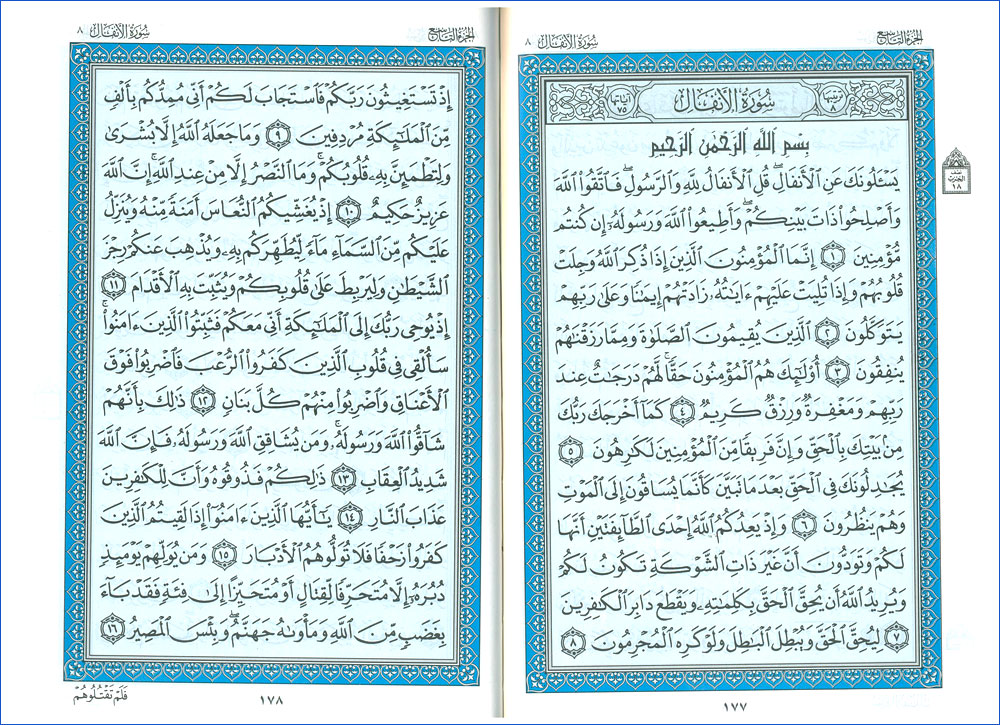 الجزء التاسع
سورة الأنفال ٨
ترتيبها ٨
سُورَةُ الأَنفَالِ
آياتها ٧٥
بِسْمِ اللَّهِ الرَّحْمَٰنِ الرَّحِيمِ
نصف الحزب ١٨
يَسْـَٔلُونَكَ عَنِ ٱلْأَنفَالِ ۖ قُلِ ٱلْأَنفَالُ لِلَّهِ وَٱلرَّسُولِ ۖ فَٱتَّقُوا۟ ٱللَّهَ
وَأَصْلِحُوا۟ ذَاتَ بَيْنِكُمْ ۖ وَأَطِيعُوا۟ ٱللَّهَ وَرَسُولَهُۥٓ إِن كُنتُم
مُّؤْمِنِينَ ١ إِنَّمَا ٱلْمُؤْمِنُونَ ٱلَّذِينَ إِذَا ذُكِرَ ٱللَّهُ وَجِلَتْ
قُلُوبُهُمْ وَإِذَا تُلِيَتْ عَلَيْهِمْ ءَايَٰتُهُۥ زَادَتْهُمْ إِيمَٰنًا وَعَلَىٰ رَبِّهِمْ
يَتَوَكَّلُونَ ٢ ٱلَّذِينَ يُقِيمُونَ ٱلصَّلَوٰةَ وَمِمَّا رَزَقْنَٰهُمْ
يُنفِقُونَ ٣ أُو۟لَٰٓئِكَ هُمُ ٱلْمُؤْمِنُونَ حَقًّا ۚ لَّهُمْ دَرَجَٰتٌ عِندَ
رَبِّهِمْ وَمَغْفِرَةٌ وَرِزْقٌ كَرِيمٌ ٤ كَمَآ أَخْرَجَكَ رَبُّكَ
مِنۢ بَيْتِكَ بِٱلْحَقِّ وَإِنَّ فَرِيقًا مِّنَ ٱلْمُؤْمِنِينَ لَكَٰرِهُونَ ٥
يُجَٰدِلُونَكَ فِى ٱلْحَقِّ بَعْدَ مَا تَبَيَّنَ كَأَنَّمَا يُسَاقُونَ إِلَى ٱلْمَوْتِ
وَهُمْ يَنظُرُونَ ٦ وَإِذْ يَعِدُكُمُ ٱللَّهُ إِحْدَى ٱلطَّآئِفَتَيْنِ أَنَّهَا
لَكُمْ وَتَوَدُّونَ أَنَّ غَيْرَ ذَاتِ ٱلشَّوْكَةِ تَكُونُ لَكُمْ
وَيُرِيدُ ٱللَّهُ أَن يُحِقَّ ٱلْحَقَّ بِكَلِمَٰتِهِۦ وَيَقْطَعَ دَابِرَ ٱلْكَٰفِرِينَ
٧ لِيُحِقَّ ٱلْحَقَّ وَيُبْطِلَ ٱلْبَٰطِلَ وَلَوْ كَرِهَ ٱلْمُجْرِمُونَ ٨
١٧٧
الجزء التاسع
سورة الأنفال ٨
إِذْ تَسْتَغِيثُونَ رَبَّكُمْ فَٱسْتَجَابَ لَكُمْ أَنِّى مُمِدُّكُم بِأَلْفٍ
مِّنَ ٱلْمَلَٰٓئِكَةِ مُرْدِفِينَ ٩ وَمَا جَعَلَهُ ٱللَّهُ إِلَّا بُشْرَىٰ
وَلِتَطْمَئِنَّ بِهِۦ قُلُوبُكُمْ ۚ وَمَا ٱلنَّصْرُ إِلَّا مِنْ عِندِ ٱللَّهِ ۚ إِنَّ ٱللَّهَ
عَزِيزٌ حَكِيمٌ ١٠ إِذْ يُغَشِّيكُمُ ٱلنُّعَاسَ أَمَنَةً مِّنْهُ وَيُنَزِّلُ
عَلَيْكُم مِّنَ ٱلسَّمَآءِ مَآءً لِّيُطَهِّرَكُم بِهِۦ وَيُذْهِبَ عَنكُمْ رِجْزَ
ٱلشَّيْطَٰنِ وَلِيَرْبِطَ عَلَىٰ قُلُوبِكُمْ وَيُثَبِّتَ بِهِ ٱلْأَقْدَامَ ١١
إِذْ يُوحِى رَبُّكَ إِلَى ٱلْمَلَٰٓئِكَةِ أَنِّى مَعَكُمْ فَثَبِّتُوا۟ ٱلَّذِينَ ءَامَنُوا۟ ۚ
سَأُلْقِى فِى قُلُوبِ ٱلَّذِينَ كَفَرُوا۟ ٱلرُّعْبَ فَٱضْرِبُوا۟ فَوْقَ
ٱلْأَعْنَاقِ وَٱضْرِبُوا۟ مِنْهُمْ كُلَّ بَنَانٍ ١٢ ذَٰلِكَ بِأَنَّهُمْ
شَآقُّوا۟ ٱللَّهَ وَرَسُولَهُۥ ۚ وَمَن يُشَاقِقِ ٱللَّهَ وَرَسُولَهُۥ فَإِنَّ ٱللَّهَ
شَدِيدُ ٱلْعِقَابِ ١٣ ذَٰلِكُمْ فَذُوقُوهُ وَأَنَّ لِلْكَٰفِرِينَ
عَذَابَ ٱلنَّارِ ١٤ يَٰٓأَيُّهَا ٱلَّذِينَ ءَامَنُوٓا۟ إِذَا لَقِيتُمُ ٱلَّذِينَ
كَفَرُوا۟ زَحْفًا فَلَا تُوَلُّوهُمُ ٱلْأَدْبَارَ ١٥ وَمَن يُوَلِّهِمْ يَوْمَئِذٍ
دُبُرَهُۥٓ إِلَّا مُتَحَرِّفًا لِّقِتَالٍ أَوْ مُتَحَيِّزًا إِلَىٰ فِئَةٍ فَقَدْ بَآءَ
بِغَضَبٍ مِّنَ ٱللَّهِ وَمَأْوَىٰهُ جَهَنَّمُ ۖ وَبِئْسَ ٱلْمَصِيرُ ١٦
١٧٨
فَلَمْ تَقْتُلُوهُمْ